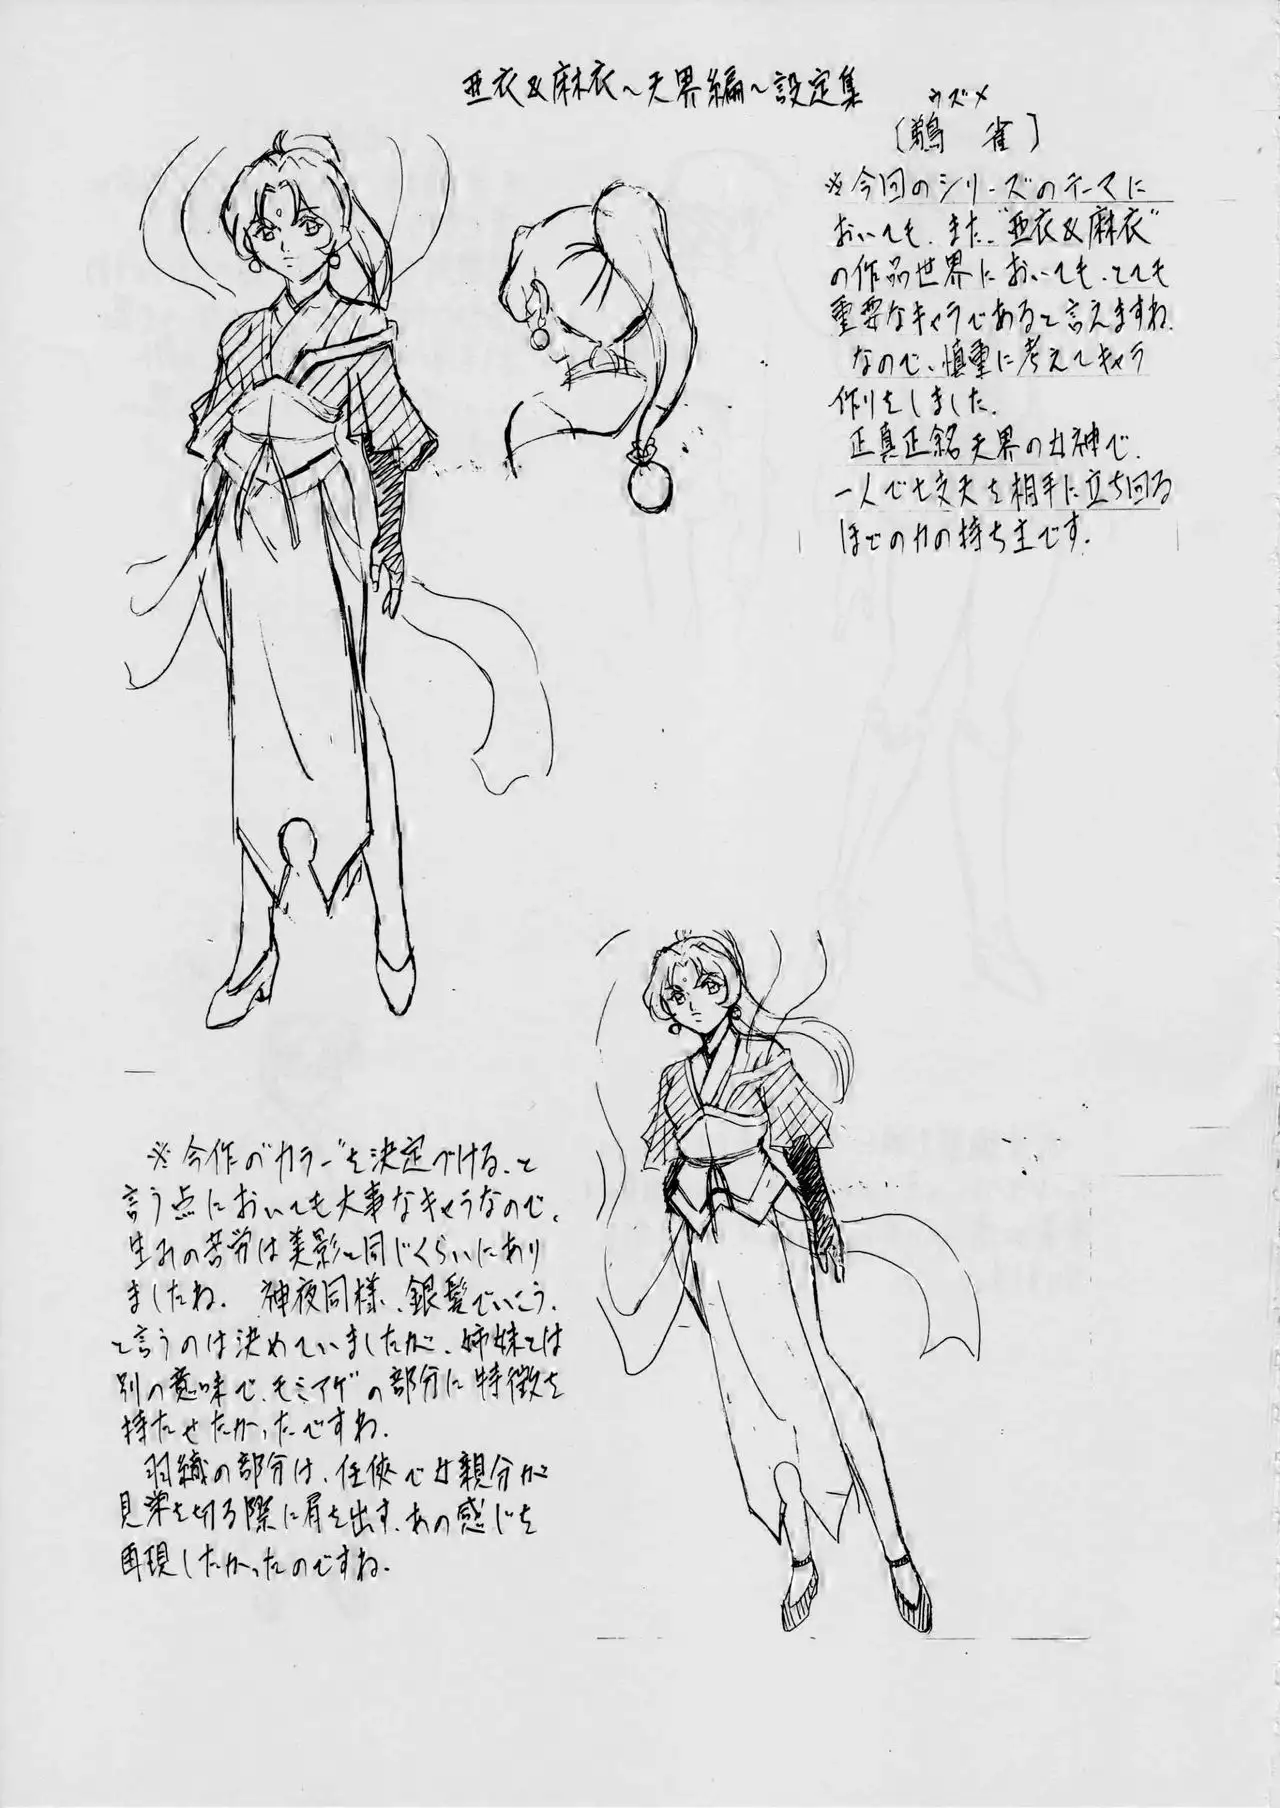 亜衣&麻衣～天界編～設定集
ウズメ
〔鵜 雀〕
※今回のシリーズのテーマに
おいても、また"亜衣&麻衣"
の作品世界においても、とても
重要なキャラであると言えますね。
なので、慎重に考えてキャラ
作りをしました。
正真正銘天界の女神で、
一人で七支天を相手に立ち回る
ほどの力の持ち主です。
※今作の"カラー"を決定づける、と
言う点においても大事なキャラなので、
生みの苦労は美影と同じくらいにあり
ましたね。 神夜同様、銀髪でいこう、
と言うのは決めていましたが、姉妹とは
別の意味で、モミアゲの部分に特徴を
持たせたかったですね。
羽織の部分は、任侠で女親分が
見栄を切る際に肩を出す、あの感じを
再現したかったのですね。